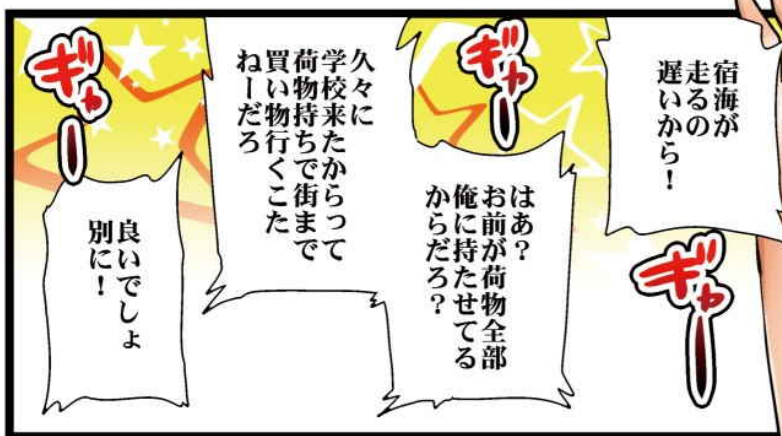 宿海が
走るの
遅いから！
ギャー
はあ？
お前が荷物全部
俺に持たせてる
からだろ？
ギャー
久々に
学校来たからって
荷物持ちで街まで
買い物行くこた
ねーだろ
ギャー
良いでしょ
別に！